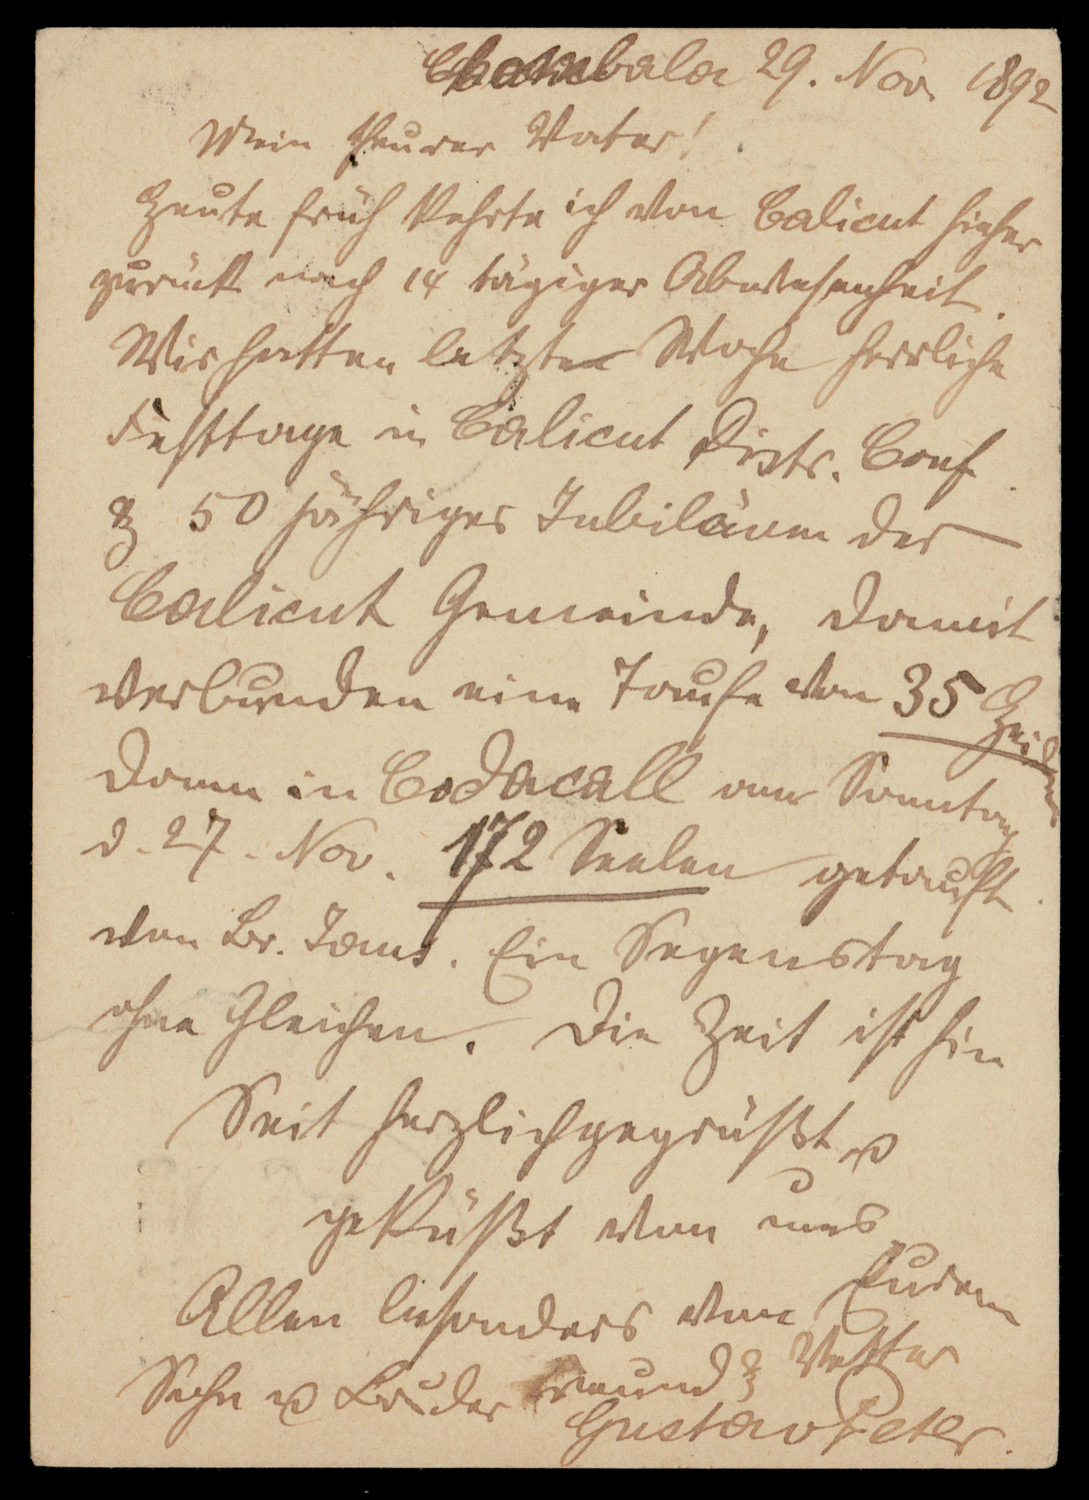 Chombala 29. Nov. 1892
Mein theurer Vater!
Heute früh kehrte ich von Calicut hieher
zurück nach 14 tägiger Abwesenheit.
Wir hatten letzte Woche herrliche
Festtage in Calicut Distr. Conf.
& 50 jähriges Jubiläum der
Calicut Gemeinde, damit
verbunden eine Taufe von 35 Heiden
Dann in Codacall am Sonntag
d. 27. Nov. 172 Seelen getauft.
von Br. Jaus. Ein Segenstag
ohne Gleichen. Die Zeit ist hin
Seit herzlich gegrüßt u
geküßt von uns
Allen besonders von Eurem
Sohn u Bruder Freund & Vetter
Gustav Peter.